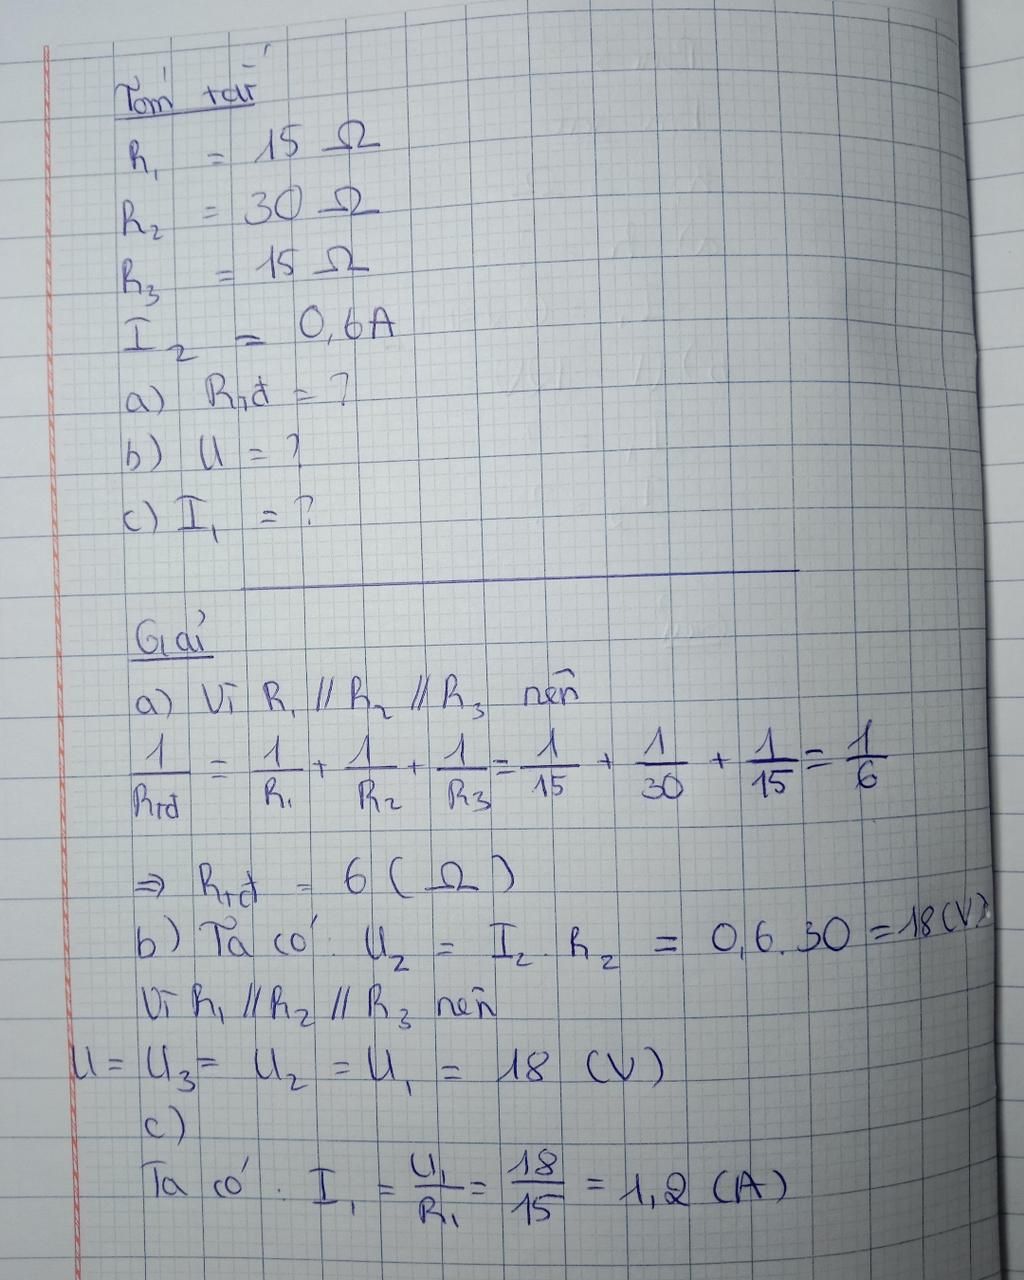 Tóm tắt
R₁ = 15 Ω
R₂ = 30 Ω
R₃ = 15 Ω
I₂ = 0,6A
a) Rtđ = ?
b) U = ?
c) I₁ = ?
Giải
a) Vì R₁ // R₂ // R₃ nên
1/Rtđ = 1/R₁ + 1/R₂ + 1/R₃ = 1/15 + 1/30 + 1/15 = 1/6
⇒ Rtđ = 6 (Ω)
b) Ta có: U₂ = I₂ . R₂ = 0,6 . 30 = 18 (V)
Vì R₁ // R₂ // R₃ nên
U = U₃ = U₂ = U₁ = 18 (V)
c)
Ta có: I₁ = U₁/R₁ = 18/15 = 1,2 (A)